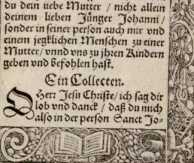 du dein liebe Mutter / nicht allein
deinem lieben Jünger Johanni /
sonder in seiner person auch mir vnd
einem jegklichen Menschen zu einer
Mutter / vnnd vns zu jhren Kindern
geben vnd befohlen hast.
Ein Collecten.
O Herr Jesu Christe / ich sag dir
lob vnd danck / daß du mich
also in der person Sanct Jo-